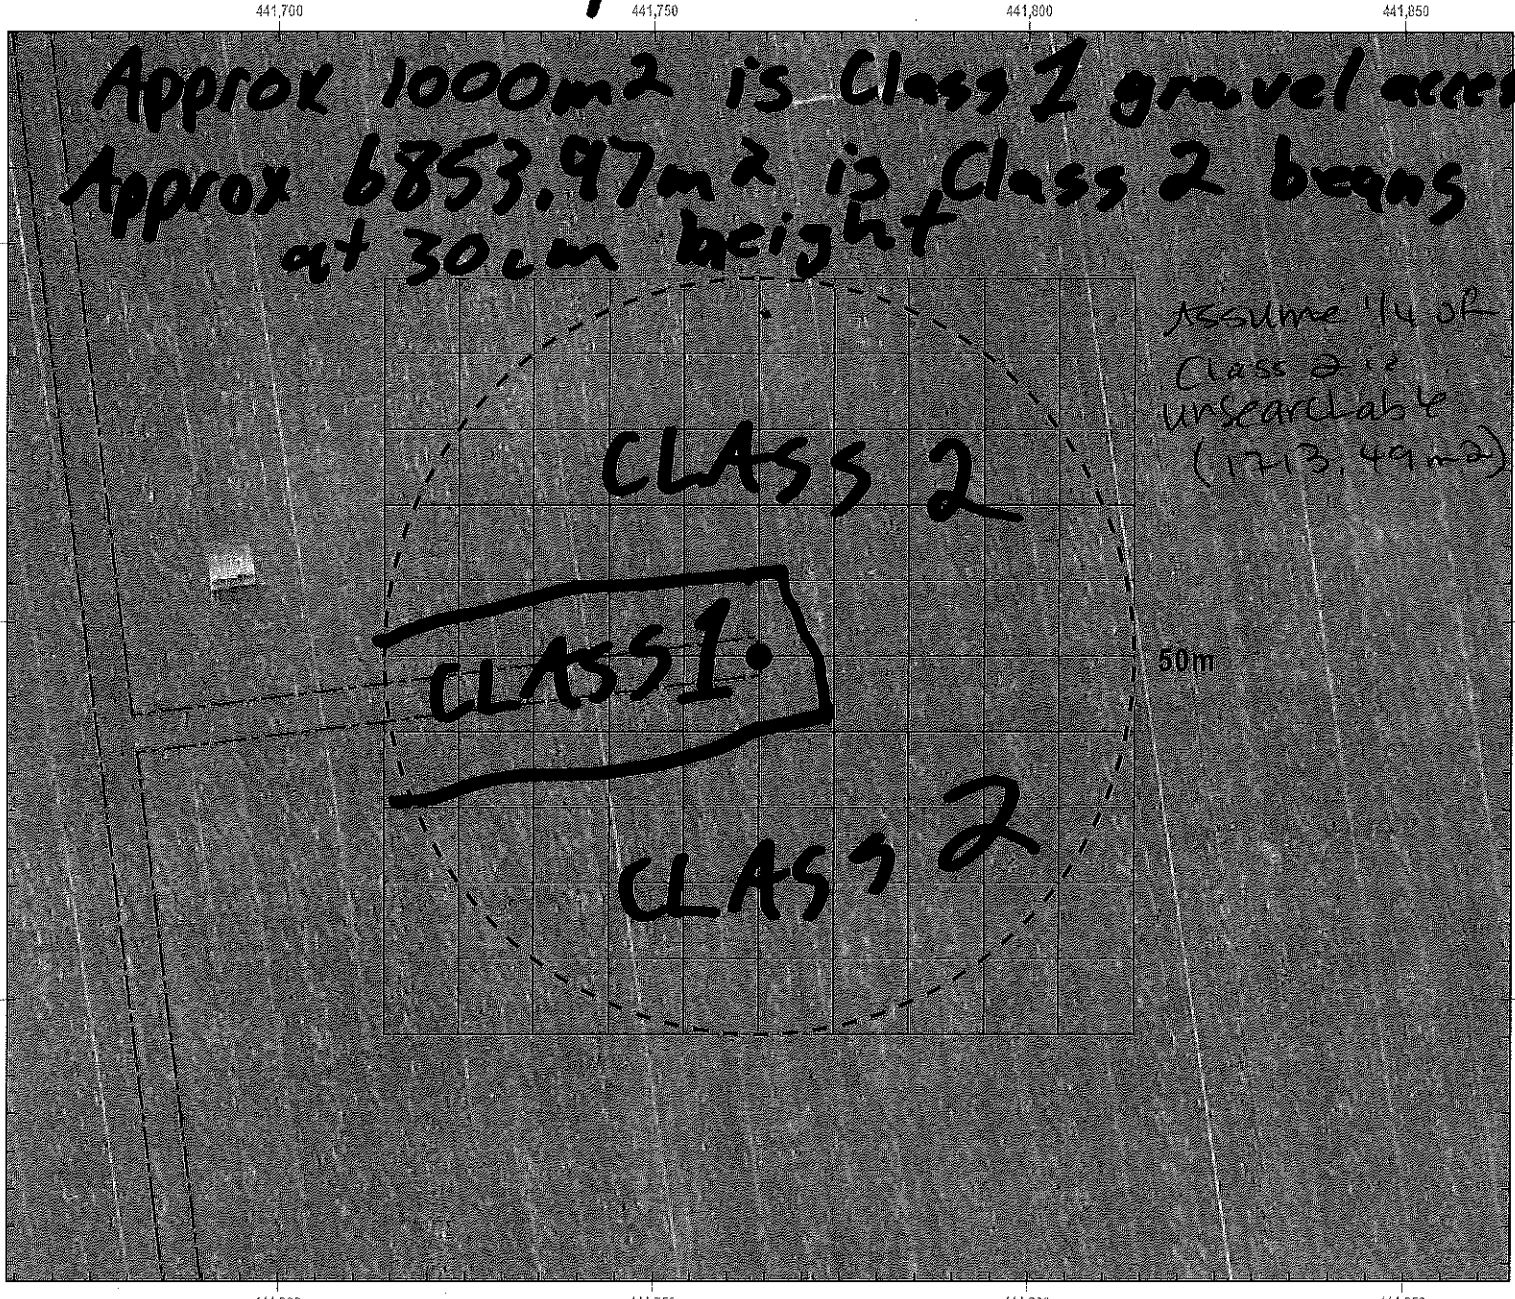 441,700 441,750 441,800 441,850
Approx 1000m2 is Class 1 gravel
Approx 6853.97m2 is Class 2 beans
at 30cm height
Assume 1/4 of
Class 2 is
unsearchable
(1713.49m2)
CLASS 2
CLASS 1
50m
CLASS 2